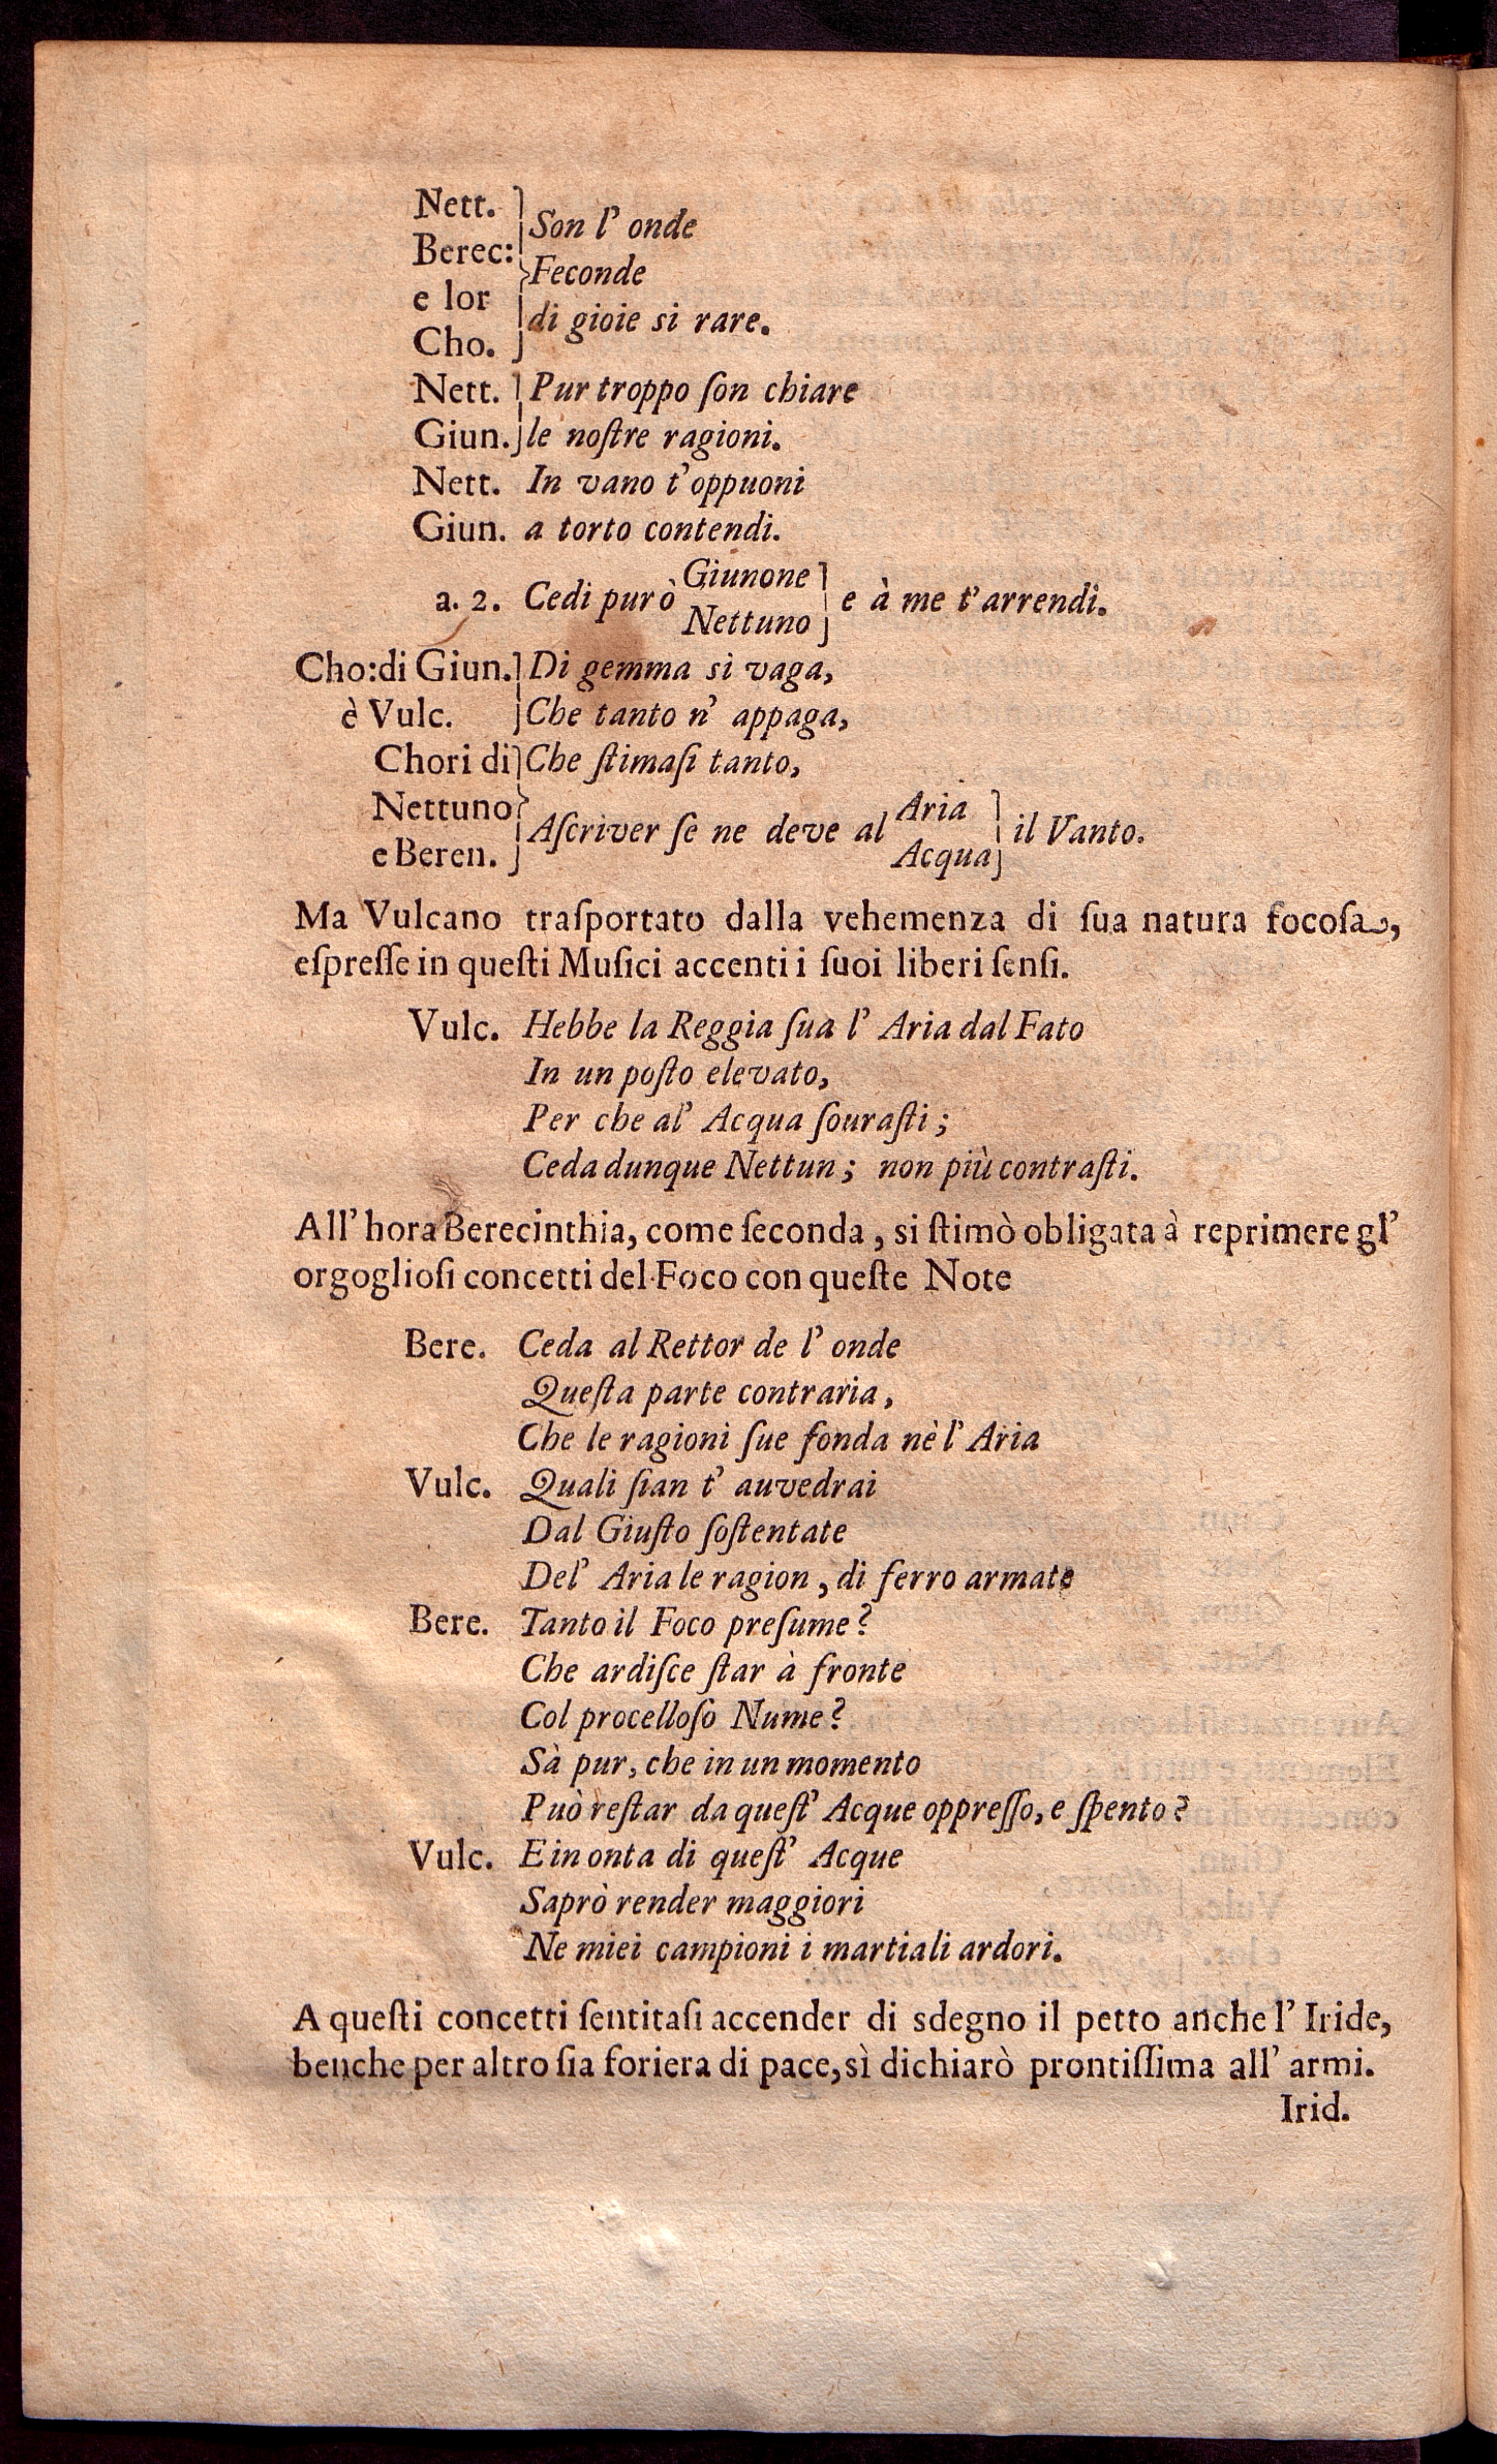 Nett.
Berec:
e lor
Cho.
Son l' onde
Feconde
di gioie si rare.
Nett. Pur troppo ſon chiare
Giun. le noſtre ragioni.
Nett. In vano t'oppuoni
Giun. a torto contendi.
a. 2. Cedi pur ò Giunone
Nettuno e à me t'arrendi.
Cho:di Giun. Di gemma si vaga,
è Vulc. Che tanto n' appaga,
Chori di Che ſtimaſi tanto,
Nettuno
e Beren.
Aſcriver ſe ne deve al Aria
Acqua il Vanto.
Ma Vulcano traſportato dalla vehemenza di ſua natura focoſa,
eſpreſſe in queſti Muſici accenti i ſuoi liberi ſenſi.
Vulc. Hebbe la Reggia ſua l' Aria dal Fato
In un poſto elevato,
Per che al' Acqua ſouraſti;
Ceda dunque Nettun; non più contraſti.
All' hora Berecinthia, come ſeconda, si ſtimò obligata à reprimere gl'
orgoglioſi concetti del Foco con queſte Note
Bere. Ceda al Rettor de l' onde
Queſta parte contraria,
Che le ragioni ſue fonda nè l' Aria
Vulc. Quali ſian t' auvedrai
Dal Giuſto ſoſtentate
Del' Aria le ragion, di ferro armate
Bere. Tanto il Foco preſume?
Che ardiſce ſtar à fronte
Col procelloſo Nume?
Sà pur, che in un momento
Può reſtar da queſt' Acque oppreſſo, e ſpento?
Vulc. E in onta di queſt' Acque
Saprò render maggiori
Ne miei campioni i martiali ardori.
A queſti concetti ſentitaſi accender di sdegno il petto anche l' Iride,
benche per altro ſia foriera di pace, sì dichiarò prontiſſima all' armi.
Irid.